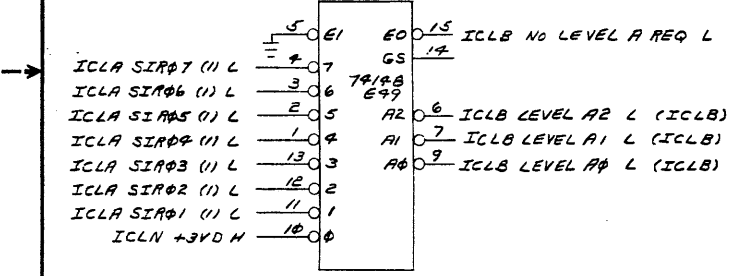 5 EI EO 15 ICLB NO LEVEL A REQ L
GS 14
ICLA SIRØ7 (1) L 4 7
74148
ICLA SIRØ6 (1) L 3 6 E49
ICLA SIRØ5 (1) L 2 5 A2 6 ICLB LEVEL A2 L (ICLB)
ICLA SIRØ4 (1) L 1 4 A1 7 ICLB LEVEL A1 L (ICLB)
ICLA SIRØ3 (1) L 13 3 AØ 9 ICLB LEVEL AØ L (ICLB)
ICLA SIRØ2 (1) L 12 2
ICLA SIRØ1 (1) L 11 1
ICLN +3VD H 10 Ø